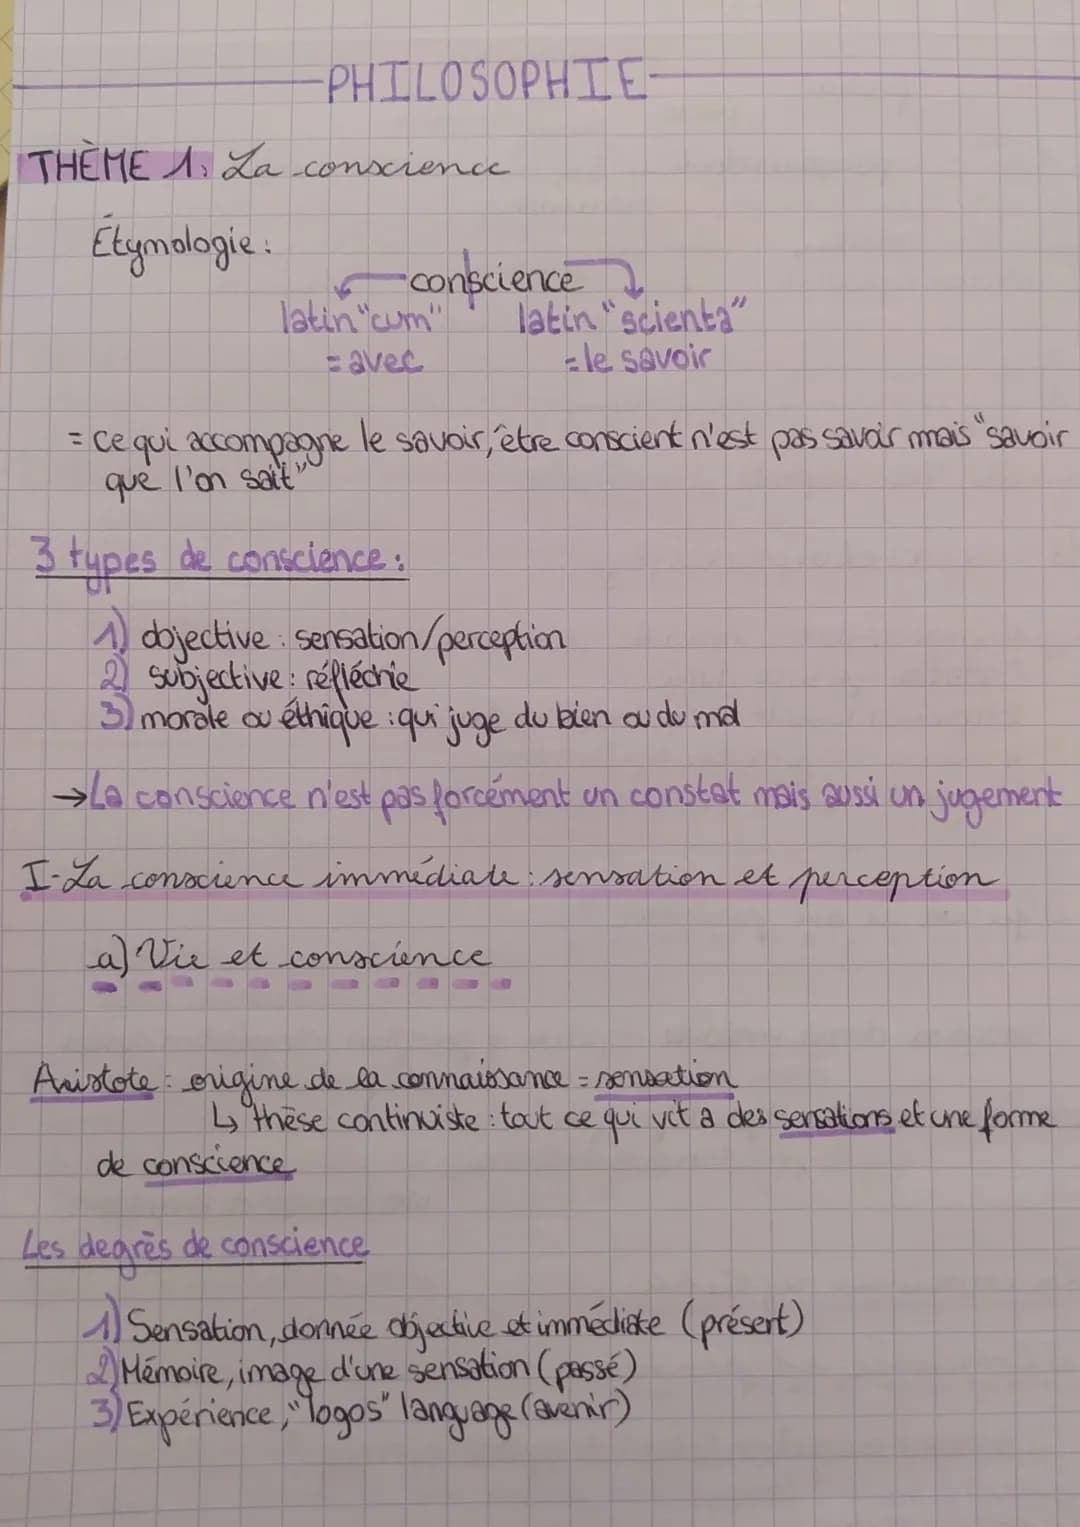 PHILOSOPHIE
THÈME 1: La conscience
Étymologie:
conscience
latin "cum" latin "scienta"
= avec = le savoir
= ce qui accompagne le savoir, être conscient n'est pas savoir mais "savoir
que l'on sait"
3 types de conscience:
1) objective: sensation/perception
2) subjective: réfléchie
3) morale ou éthique: qui juge du bien ou du mal
→ La conscience n'est pas forcément un constat mais aussi un jugement
I-La conscience immédiate: sensation et perception
a) Vie et conscience
Aristote: origine de la connaissance = sensation
↳ thèse continuiste: tout ce qui vit a des sensations et une forme
de conscience
Les degrès de conscience
1) Sensation, donnée objective et immédiate (présent)
2) Mémoire, image d'une sensation (passé)
3) Expérience, "logos" language (avenir)